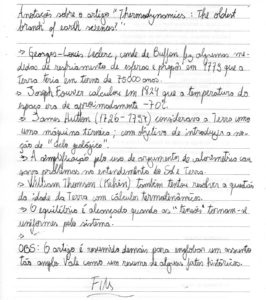 Anotações sobre o artigo "Thermodynamics: The oldest
branch of earth sciences?"
> Georges-Louis Leclerc, conde de Buffon fez algumas me-
didas de resfriamento de esferas e propôs em 1779 que a
Terra teria em torno de 75000 anos.
> Joseph Fourier calculou em 1824 que a temperatura do
espaço era de aproximadamente -70°.
> James Hutton (1726-1797) considerava a Terra como
uma máquina térmica; com objetivo de introduzir a no-
ção de "ciclo geológico".
> A simplificação pelo uso de argumentos de calorimetria cau-
sava problemas no entendimento do Sol e Terra.
> William Thomson (Kelvin) também tentou resolver a questão
da idade da Terra com cálculos termodinâmicos.
> O equilíbrio é alcançado quando as "tensões" tornam-se
uniformes pelo sistema.
OBS: O artigo é resumido demais para englobar um assunto
tão amplo. Vale como um resumo de alguns fatos históricos.
Fim